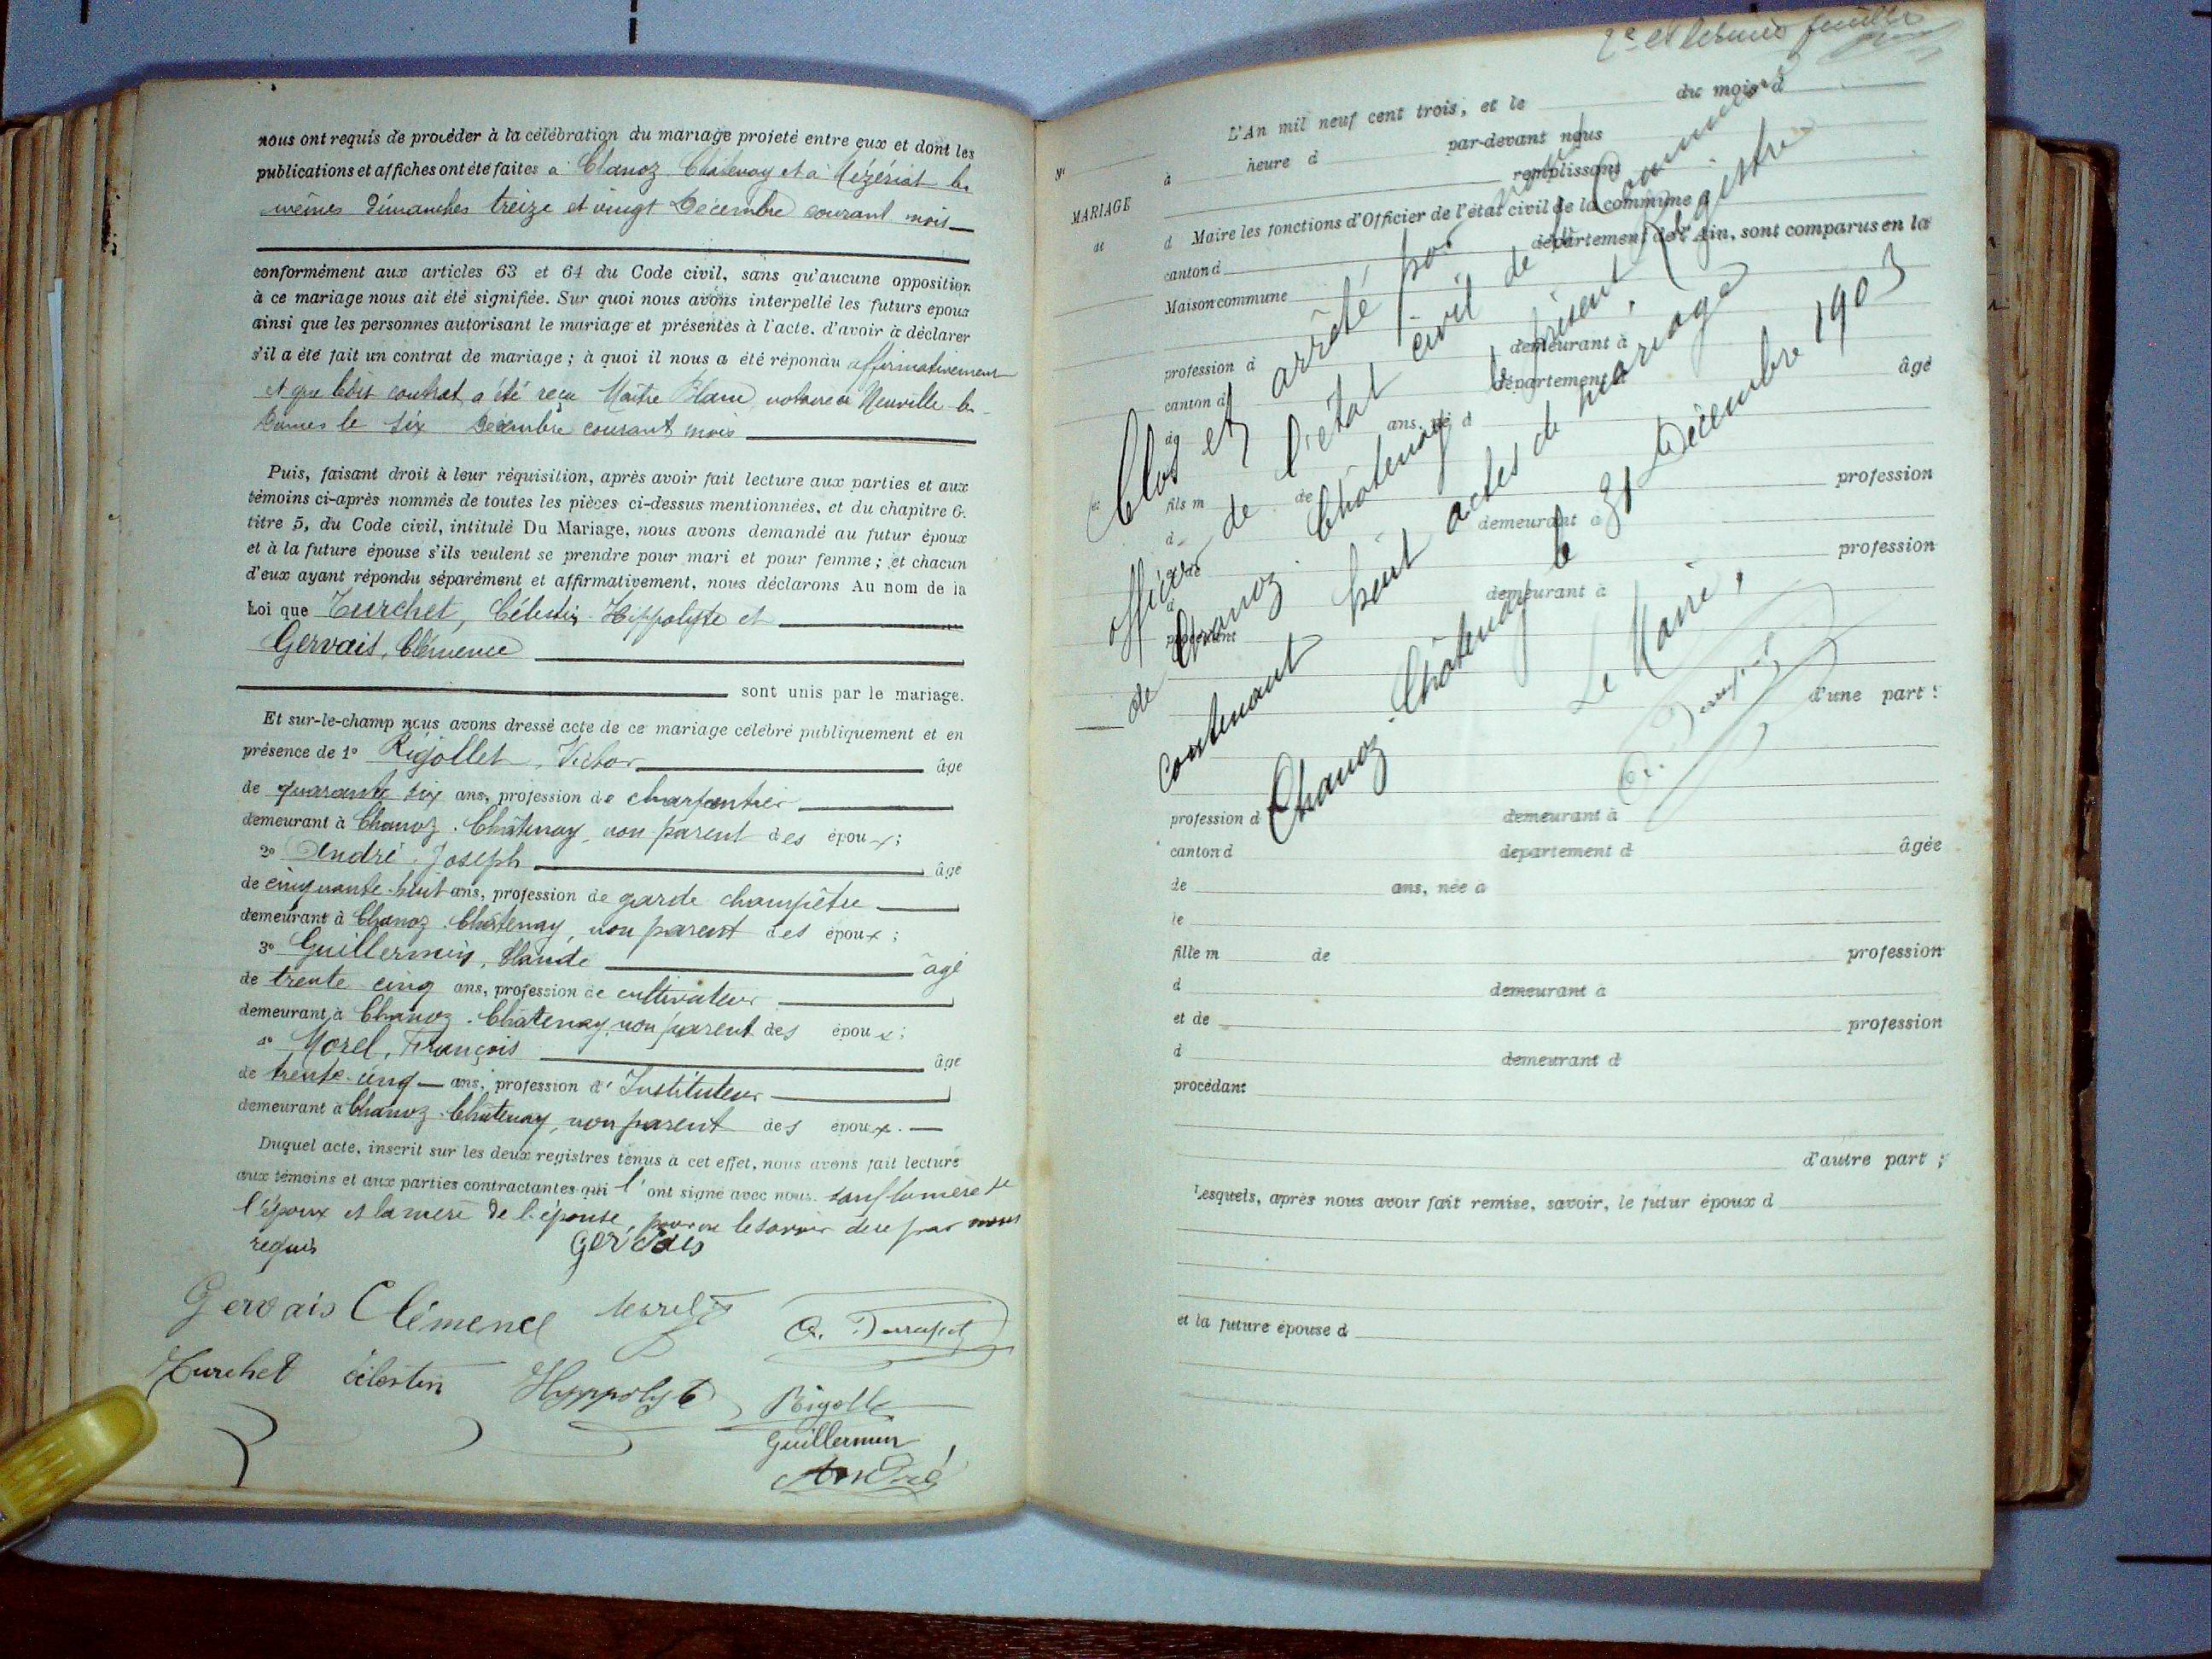 nous ont requis de procéder à la célébration du mariage projeté entre eux et dont les
publications et affiches ont été faites à Chanoz Châtenay et à Mézériat les
mêmes dimanches treize et vingt Décembre courant mois
conformément aux articles 63 et 64 du Code civil, sans qu'aucune opposition
à ce mariage nous ait été signifiée. Sur quoi nous avons interpellé les futurs époux
ainsi que les personnes autorisant le mariage et présentes à l'acte, d'avoir à déclarer
s'il a été fait un contrat de mariage ; à quoi il nous a été répondu affirmativement
et que ledit contrat a été reçu Maître Blanc notaire à Neuville les
Dames le six Décembre courant mois
Puis, faisant droit à leur réquisition, après avoir fait lecture aux parties et aux
témoins ci-après nommés de toutes les pièces ci-dessus mentionnées, et du chapitre 6.
titre 5, du Code civil, intitulé Du Mariage, nous avons demandé au futur époux
et à la future épouse s'ils veulent se prendre pour mari et pour femme ; et chacun
d'eux ayant répondu séparément et affirmativement, nous déclarons Au nom de la
Loi que Turchet, Célestin Hippolyte et
Gervais, Clémence
sont unis par le mariage.
Et sur-le-champ nous avons dressé acte de ce mariage célébré publiquement et en
présence de 1º Rigollet, Victor âgé
de quarante six ans, profession de charpentier
demeurant à Chanoz-Châtenay, non parent des époux ;
2º André Joseph âgé
de cinquante-huit ans, profession de garde champêtre
demeurant à Chanoz-Châtenay, non parent des époux ;
3º Guillermin, Claude âgé
de trente cinq ans, profession de cultivateur
demeurant à Chanoz-Châtenay, non parent des époux ;
4º Morel, François âgé
de trente-cinq ans, profession d'Instituteur
demeurant à Chanoz-Châtenay, non parent des époux.
Duquel acte, inscrit sur les deux registres tenus à cet effet, nous avons fait lecture
aux témoins et aux parties contractantes qui l'ont signé avec nous. sauf la mère de
l'époux et la mère de l'épouse, pour ne le savoir de ce par nous
requis
Gervais
Gervais Clémence Morel F
Turchet célestin Hyppolyte
Rigollet
Guillermin
André
2e et dernier feuillet
Nº
MARIAGE
de
L'An mil neuf cent trois, et le du mois d
à heure d par-devant nous
remplissant
d Maire les fonctions d'Officier de l'état civil de la commune d
canton d département de l'Ain, sont comparus en la
Maison commune
profession d demeurant à
canton d département d âgé
de ans, né à
fils m de profession
d demeurant à
et de profession
d demeurant à
procédant
d'une part :
Clos et arrêté par nous
officier de l'état civil de la Commune
de Chanoz Châtenay le présent Registre
contenant huit actes de mariage
Chanoz-Châtenay le 31 Décembre 1903
Le Maire,
et
profession d demeurant à
canton d département d âgée
de ans, née à
le
fille m de profession
d demeurant à
et de profession
d demeurant à
procédant
d'autre part ;
Lesquels, après nous avoir fait remise, savoir, le futur époux d
et la future épouse d